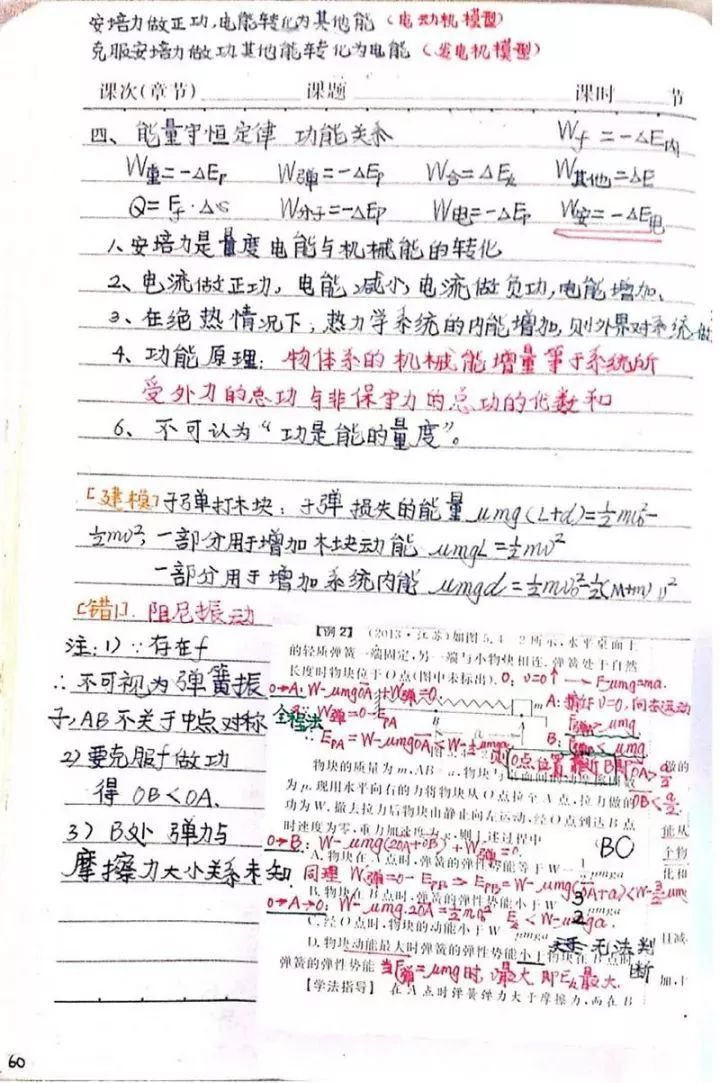 安培力做正功,电能转化为其他能(电动机模型)
克服安培力做功,其他能转化为电能(发电机模型)
课次(章节) 课题 课时 节
四、能量守恒定律 功能关系 Wf = -ΔE内
W重=-ΔEp W弹=-ΔEp W合=ΔEk W其他=ΔE
Q=Ff·ΔS W分子=-ΔEp W电=-ΔEp W安=-ΔE电
1、安培力是量度电能与机械能的转化
2、电流做正功,电能减小,电流做负功,电能增加、
3、在绝热情况下,热力学系统的内能增加,则外界对系统做
4、功能原理:物体系的机械能增量等于系统所
受外力的总功与非保守力的总功的代数和
6、不可认为“功是能的量度”。
[建模]子弹打木块:子弹损失的能量 μmg(L+d)=½mv₀²-
½mv²,一部分用于增加木块动能 μmgL=½mv²
一部分用于增加系统内能 μmgd=½mv₀²-½(M+m)v²
[错1].阻尼振动
注:1)∵存在f
∴不可视为弹簧振
子,AB不关于中点对称
2)要克服f做功
得 OB<OA.
3)B处 弹力与
摩擦力大小关系未知
【例2】(2013·江苏)如图5.4-2所示,水平桌面上
的轻质弹簧一端固定,另一端与小物块相连.弹簧处于自然
长度时物块位于O点(图中未标出). O:v=0 F-μmg=ma.
O→A:W-μmgOA+W弹=0. m A:撤F v=0,向左运动
全程法 W弹=0-EPA F弹>μmg
∴EPA=W-μmgOA<W-½μmga B:
O点位置靠近B即OA>a/2
物块的质量为m,AB=a,物块与桌面间的动摩擦因数 OB<a/2
为μ.现用水平向右的力将物块从O点拉至A点,拉力做的
功为W.撤去拉力后物块由静止向左运动,经O点到达B点
时速度为零.重力加速度为g.则上述过程中
O→B:W-μmg(2OA+OB)+W弹=0. BO
A.物块在A点时,弹簧的弹性势能等于W-½μmga
同理 W弹=0-EPB ⇒ EPB=W-μmg(OA+a)<W-3/2μmga
B.物块在B点时,弹簧的弹性势能小于W-3/2μmga
O→A→O:W-μmg·2OA=½mv₀² Ek<W-μmga.
C.经O点时,物块的动能小于W-μmga
D.物块动能最大时弹簧的弹性势能小于物块在B点时
弹簧的弹性势能 当F弹=μmg时,v最大,即Ek最大. 无法判断
【学法指导】 在A点时弹簧弹力大于摩擦力,而在B
60